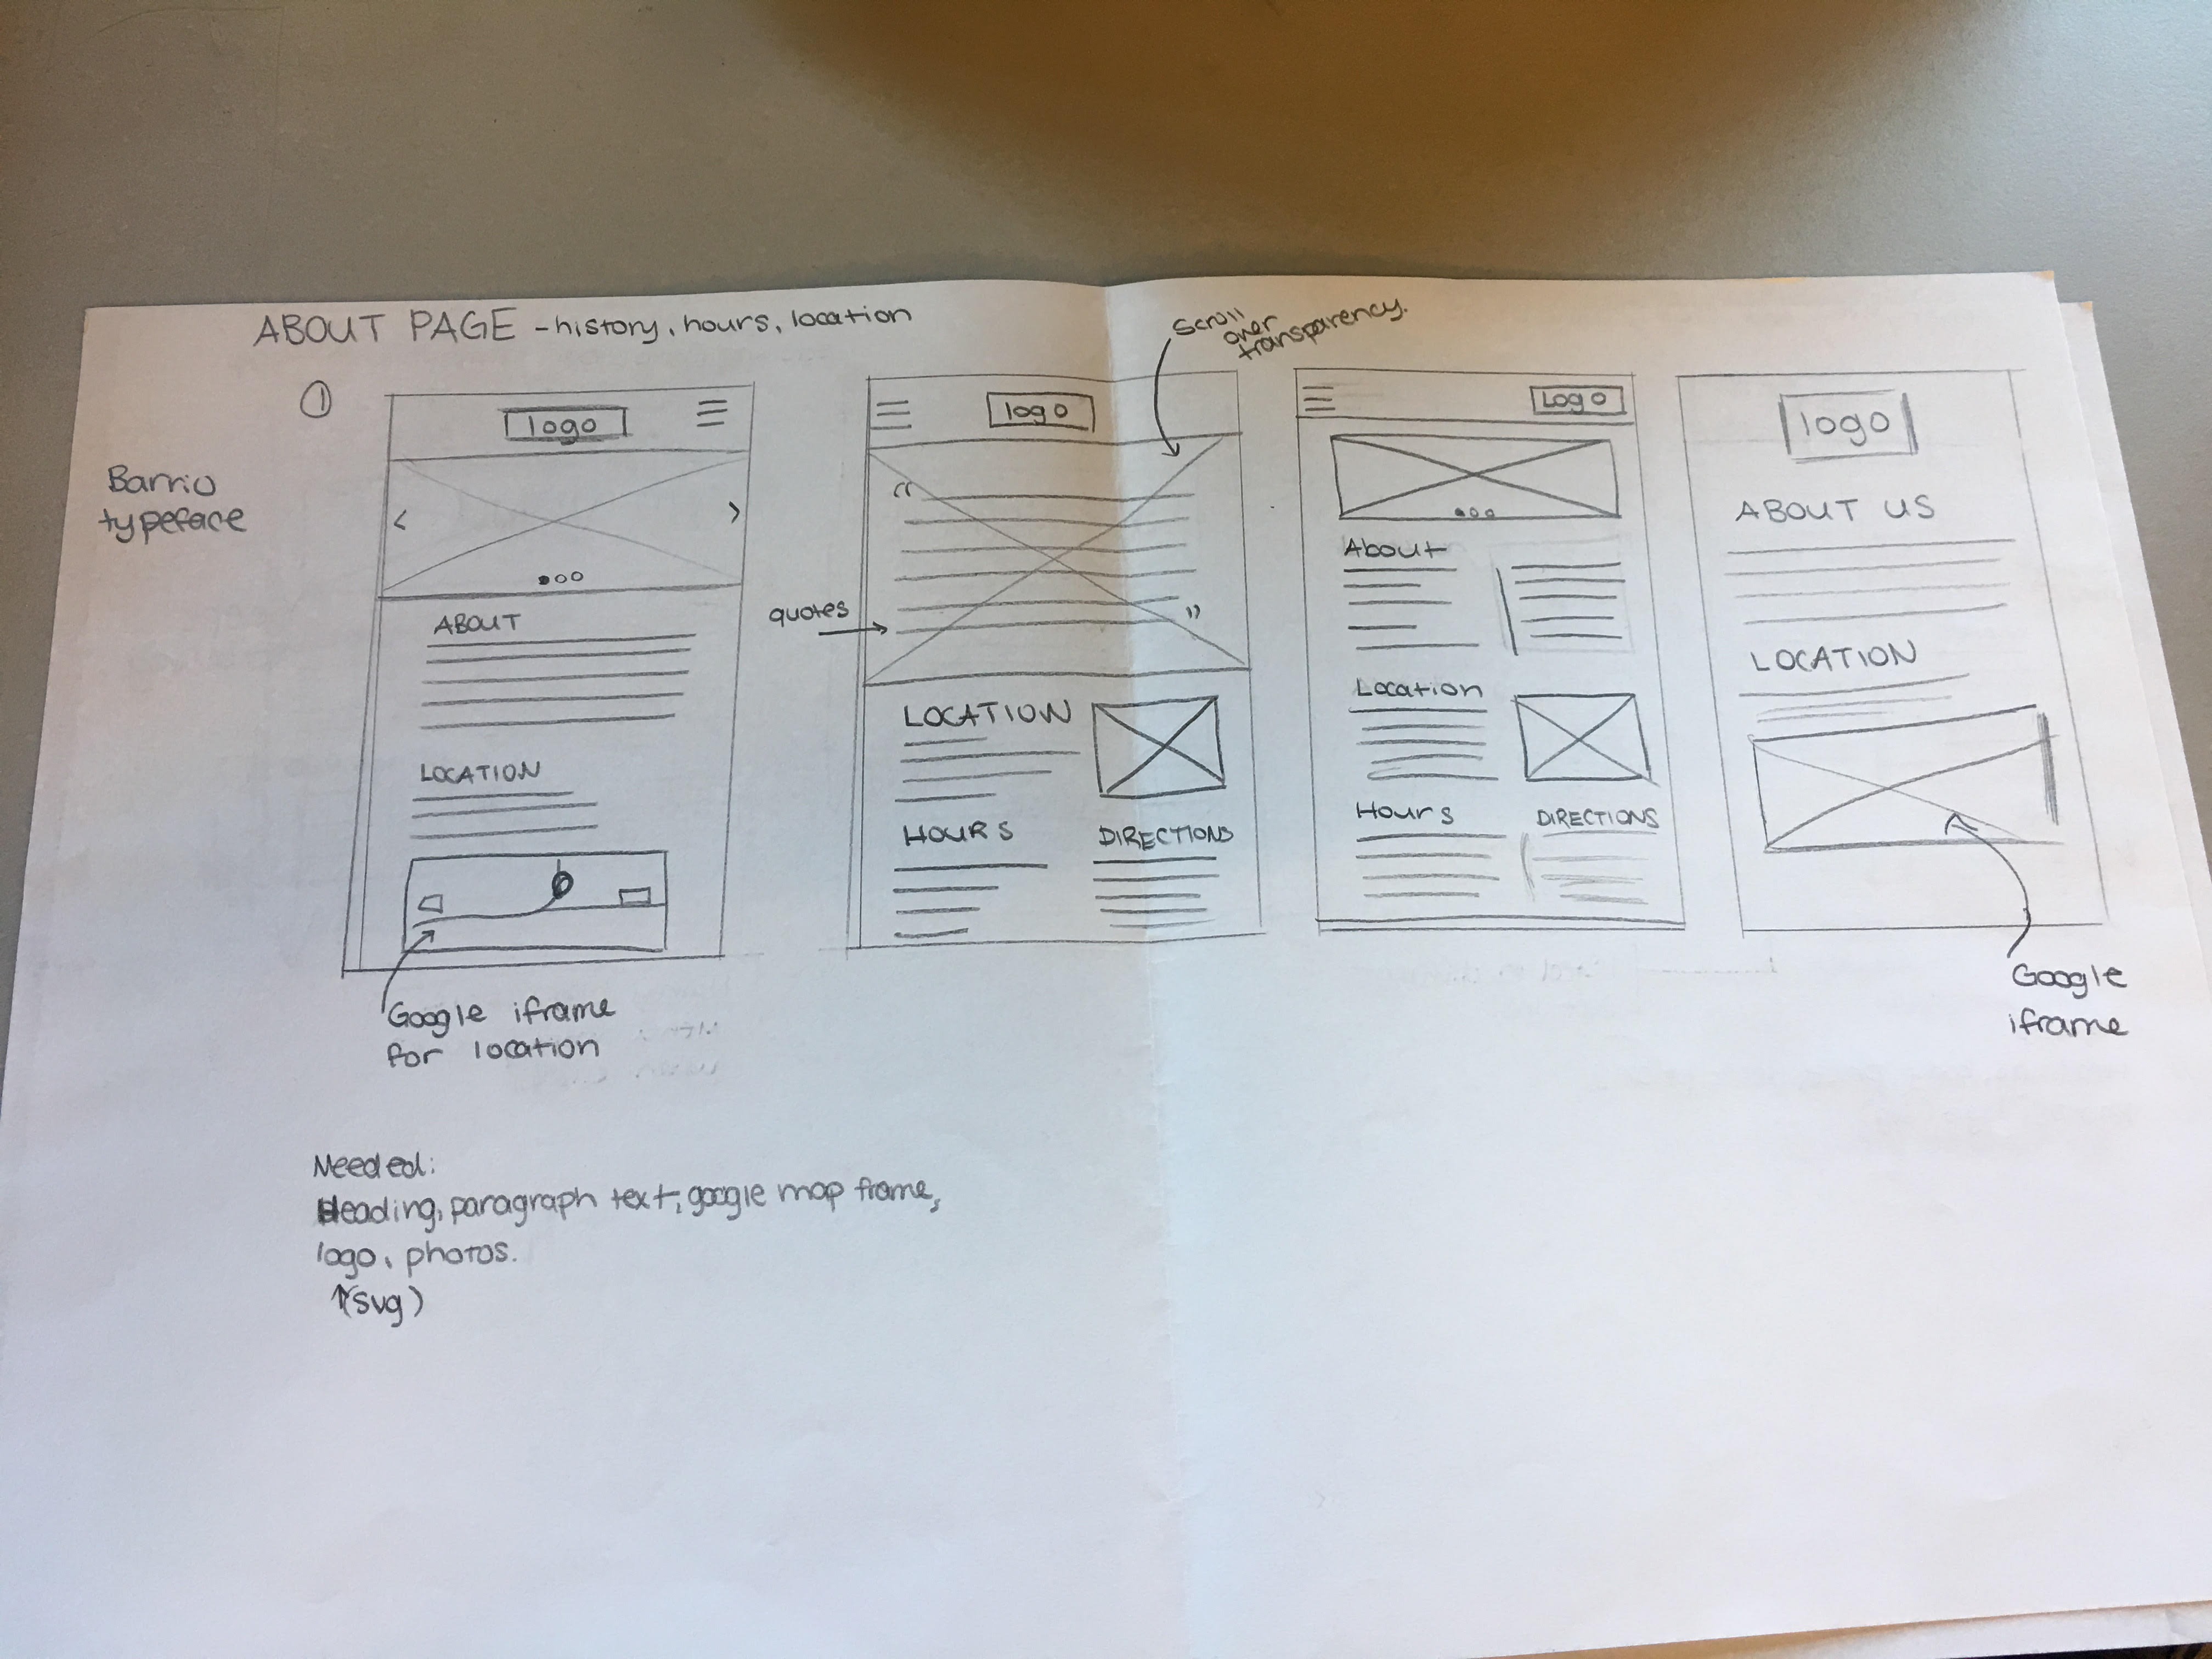 ABOUT PAGE - history, hours, location
1
Barrio
typeface
logo
< >
ABOUT
LOCATION
Google iframe
for location
Scroll
over
transparency.
logo
“
”
quotes
LOCATION
HOURS
DIRECTIONS
Logo
About
Location
Hours
DIRECTIONS
logo
ABOUT US
LOCATION
Google
iframe
Needed:
Heading, paragraph text, google map frame,
logo, photos.
↑(svg)